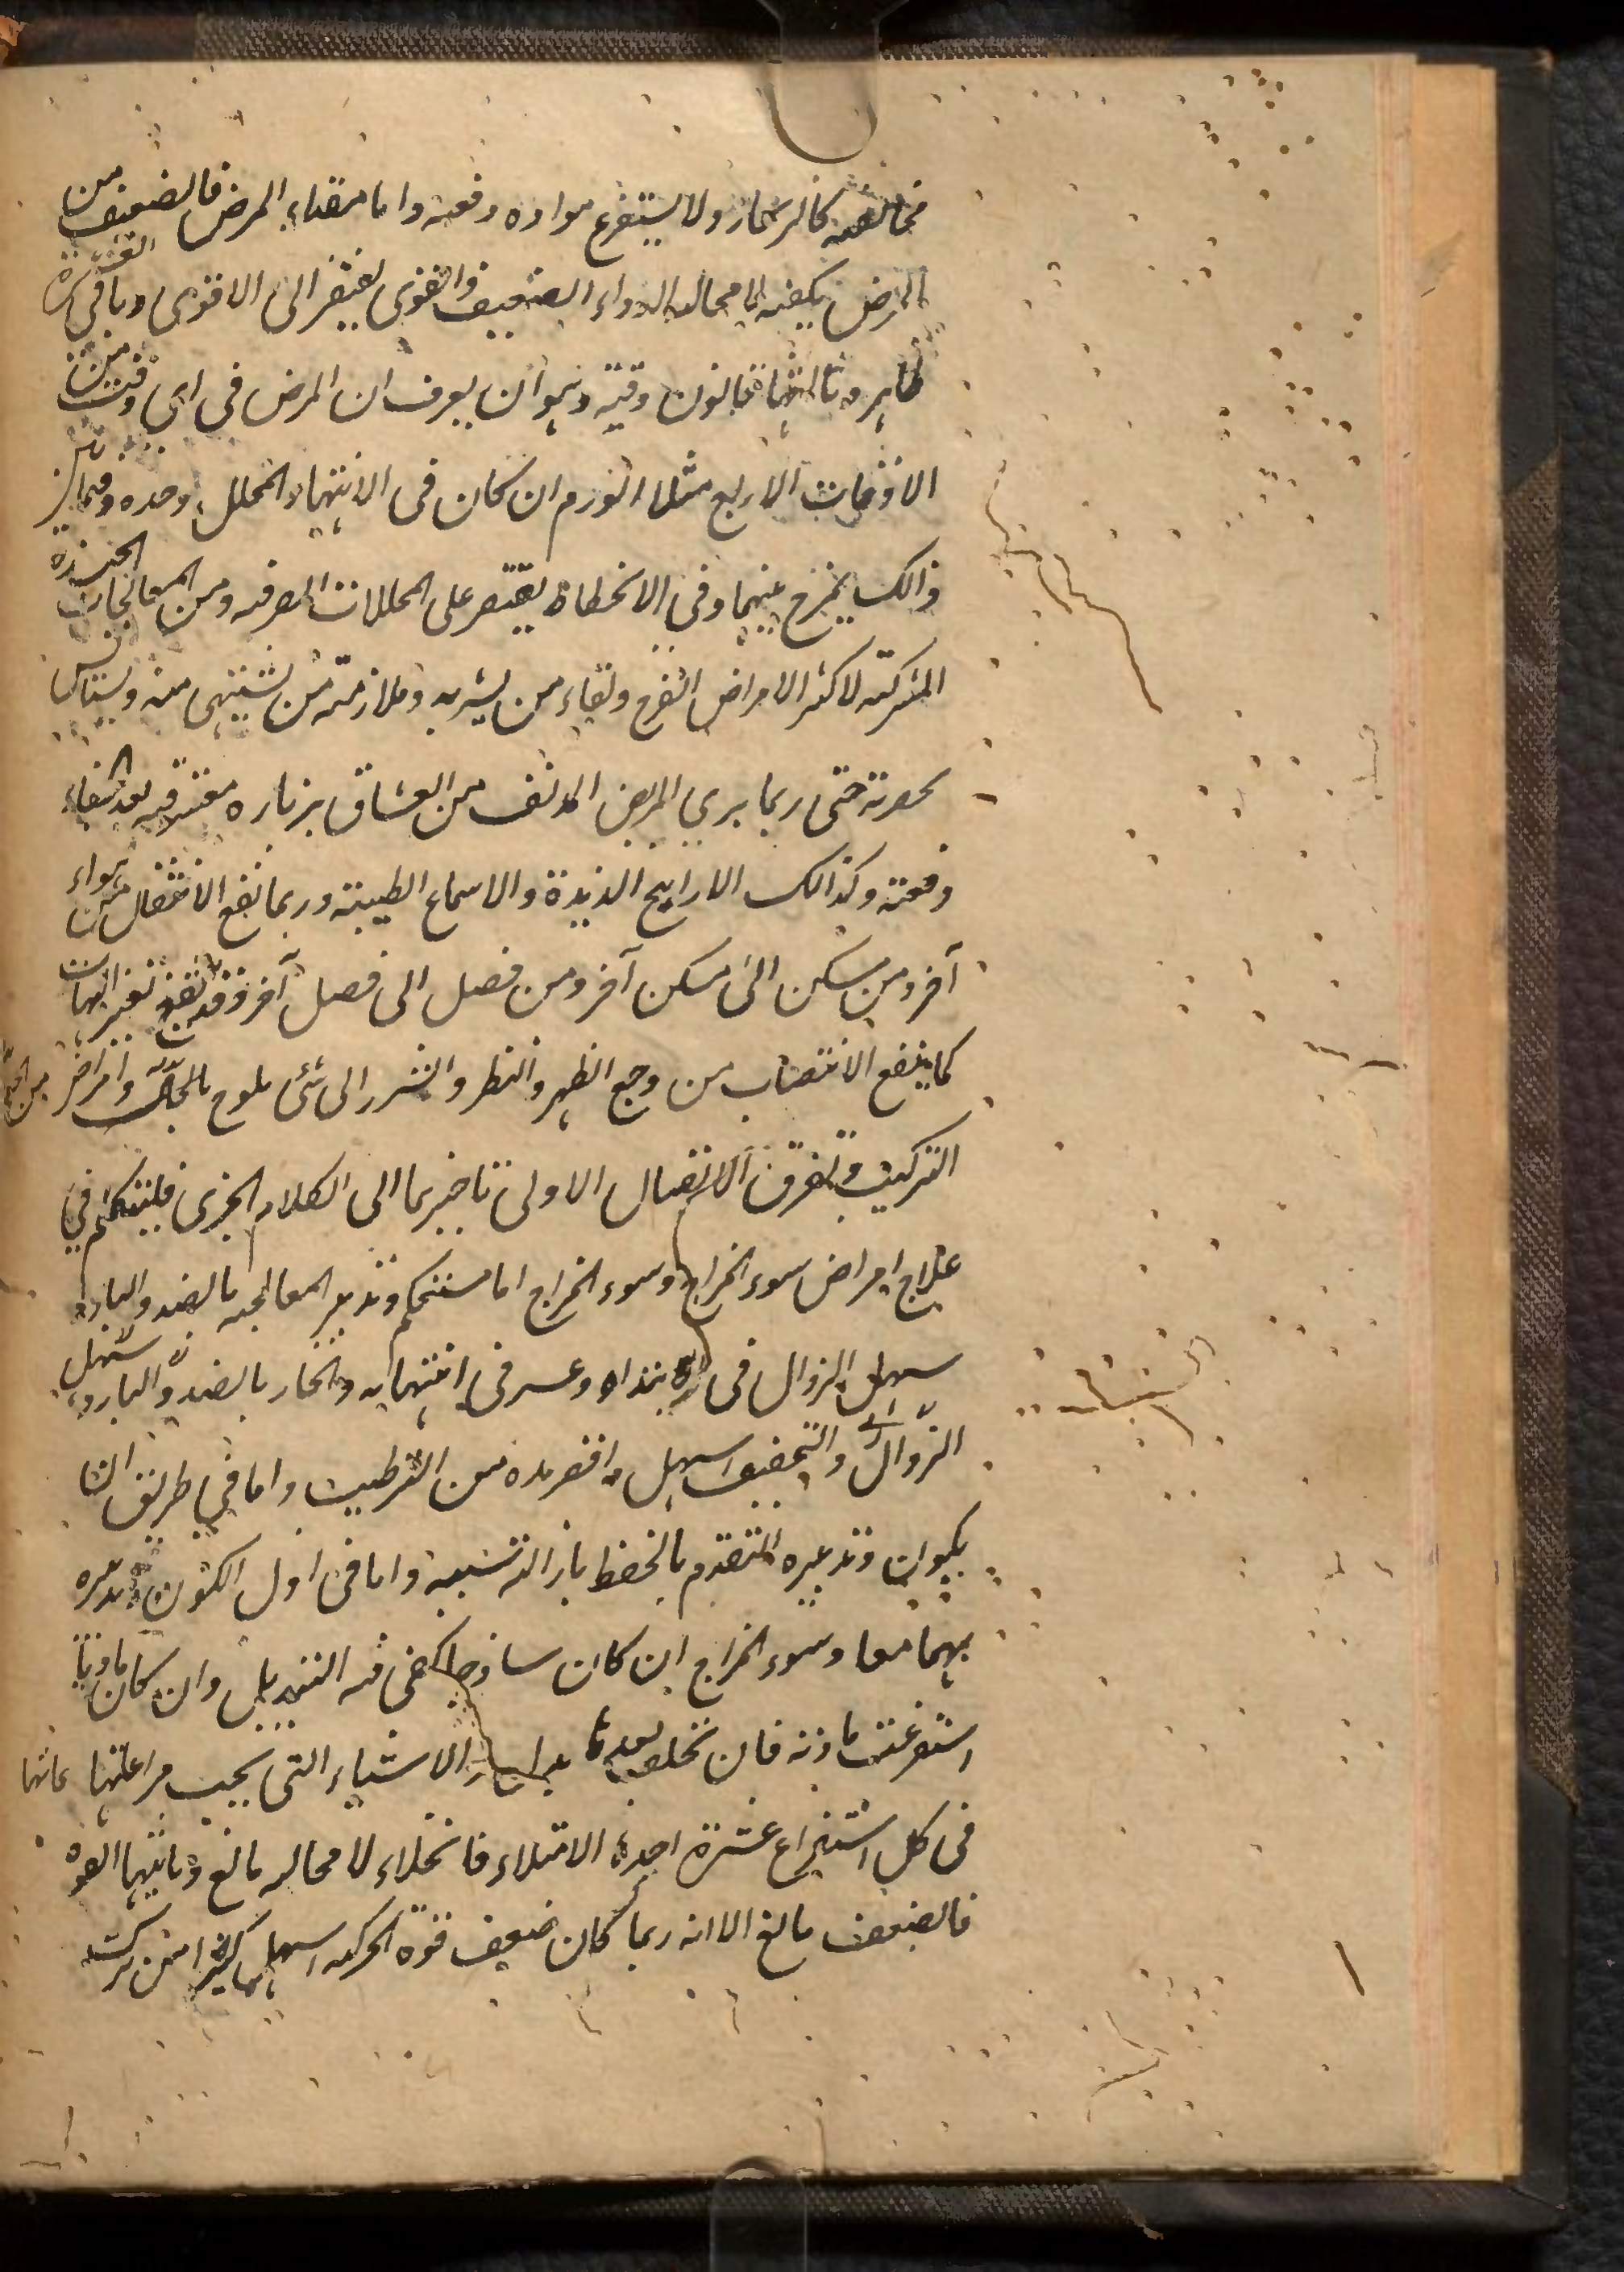 مخالفته كالرسحار ولا يستفرغ مواده دفعه واما مقدار المرض فالضعيف من
المرض يكفيه لا محاله الدواء الضعيف والقوى يفتقر الى الاقوى وباقى العشرة
ظاهر وثالثها قانون وقته وهو ان يعرف ان المرض فى اى وقت من
الاوقات الاربع مثلا الورم ان كان فى الانتهاء المحلل وحده وفيما بين
ذالك يمزج بينهما وفى الانحطاط يقتصر على المحللات الصرفه ومن المعالجات الجيدة
المشتركة لاكثر الامراض الفرح ولقاء من يسر به وملازمة من يشتهى منه ويستأنس
بحضرته حتى ربما برى المريض المدنف من العشاق بزياره معشوقه بعد الجفاء
دفعته وكذالك الارايح الذيذة والاسماع الطيبته وربما نفع الانتقال من هواء
آخر ومن مسكن الى مسكن آخر ومن فصل الى فصل آخر وقد ينفع تغير الهيات
كما ينفع الانتصاب من وجع الظهر والنظر والشرر الى شئ يلوح من الحول وامراض
التركيب وتفرق الاتصال الاولى تاخيرها الى الكلام الجزى فلنتكلم فى
علاج امراض سوء المزاج وسوء المزاج اما مستحكم وتدبير المعالجه بالضد والبارد
سهل الزوال فى الابتداء وعسر فى انتهايه والحار بالضد والبارد سهل
الزوال والتجفيف اسهل واقصر مده من الترطيب واما فى طريق ان
يكون وتدبيره التقدم بالحفظ بازالته سببه واما فى اول الكون وتدبيره
بهما معا وسوء المزاج ان كان ساذجا كفى فيه التبديل وان كان ماديا
استفرغت مادته فان تخلف بعده بدل الاشياء التى يجب مراعاتها
فى كل استفراغ عشرة احدها الامتلاء فالخلاء لا محاله مانع وثانيها القوه
فالضعف مانع الا انه ربما كان ضعف قوة الحركه اسهل كثيرا من ترك